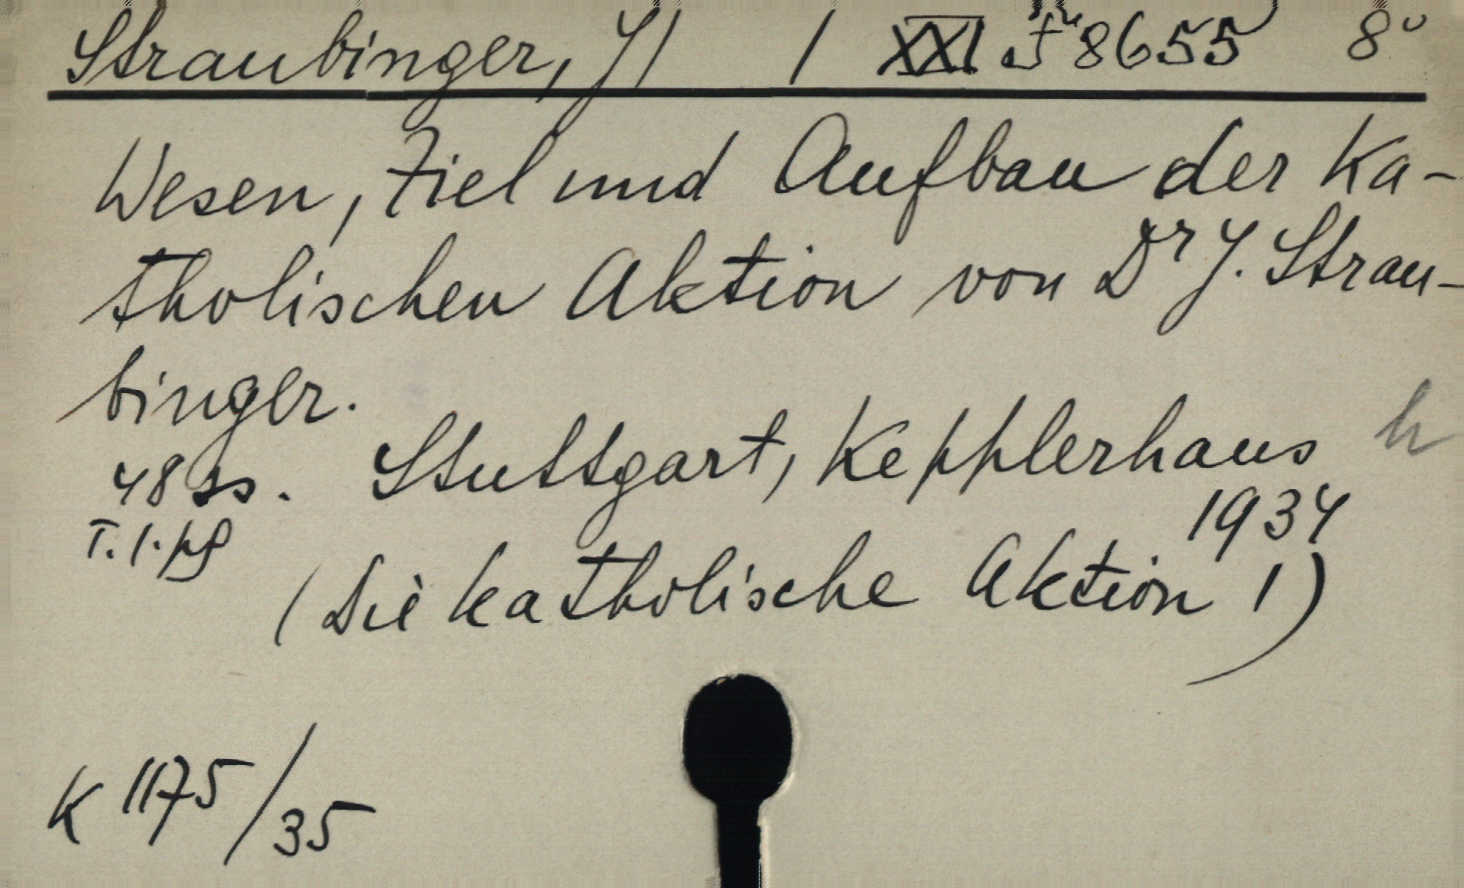 Straubinger, J/ / XXI J 8655 8°
Wesen, Ziel und Aufbau der Ka-
tholischen Aktion von Dr J. Strau-
binger.
48 ss. Stuttgart, Kepplerhaus h
T. 1. pg 1934
(Die katholische Aktion 1)
K 1175/35